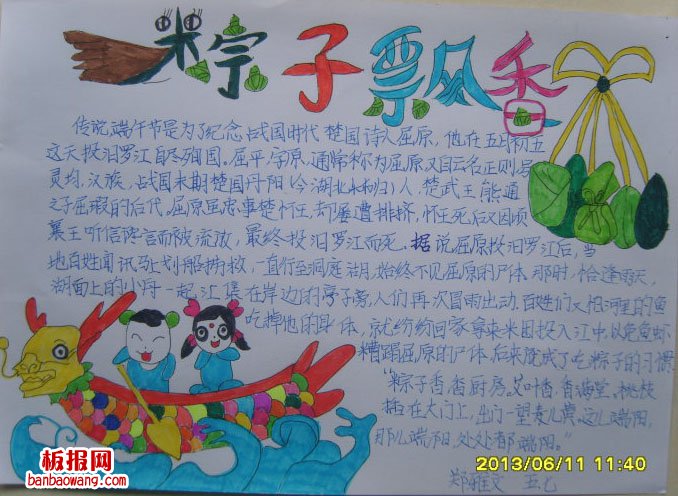 粽子飘香
传说端午节是为了纪念战国时代楚国诗人屈原，他在五月初五
这天投汨罗江自尽殉国。屈平，字原，通常称为屈原，又自云名正则，号
灵均，汉族，战国末期楚国丹阳（今湖北秭归）人，楚武王熊通
之子屈瑕的后代。屈原虽忠事楚怀王，却屡遭排挤，怀王死后又因顷
襄王听信谗言而被流放，最终投汨罗江而死。据说屈原投汨罗江后，当
地百姓闻讯马上划船捞救，一直行至洞庭湖，始终不见屈原的尸体。那时，恰逢雨天，
湖面上的小舟一起汇集在岸边的亭子旁，人们再次冒雨出动，百姓们又怕河里的鱼
吃掉他的身体，就纷纷回家拿来米团投入江中，以免鱼虾
糟蹋屈原的尸体，后来就成了吃粽子的习惯
“粽子香，香厨房。艾叶香，香满堂。桃枝
插在大门上，出门一望麦儿黄。这儿端阳，
那儿端阳，处处都端阳。”
郑雅文 五七
2013/06/11 11:40
板报网
banbaowang.com